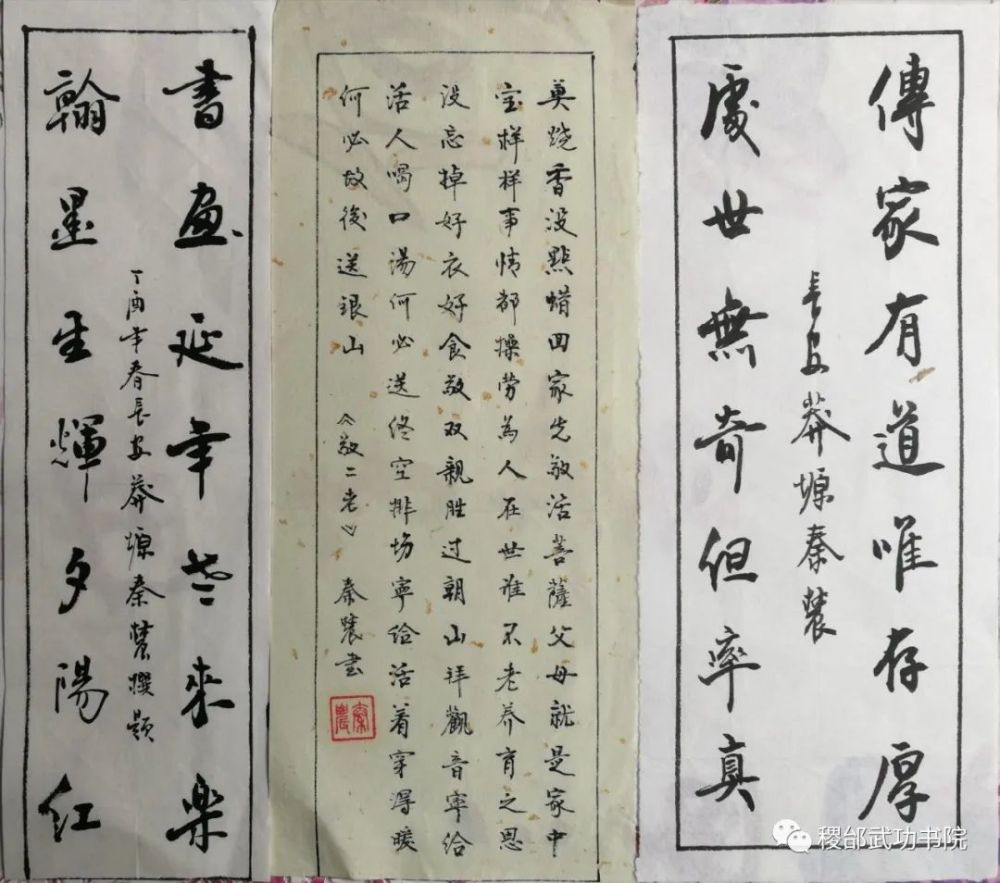 傳家有道唯存厚
長安莽塬秦辳
處世無奇但率真
莫烧香没點蜡回家先敬活菩薩父母就是家中
宝样样事情都操劳為人在世谁不老养育之恩
没忘掉好衣好食敬双親胜过朝山拜觀音寧给
活人喝口湯何必送终空排场寧给活着穿得暖
何必故後送银山 《敬二老》 秦辳書
秦農
書画延年老來樂
丁酉年春長安莽塬秦辳撰题
翰墨生輝夕陽红
稷邰武功书院